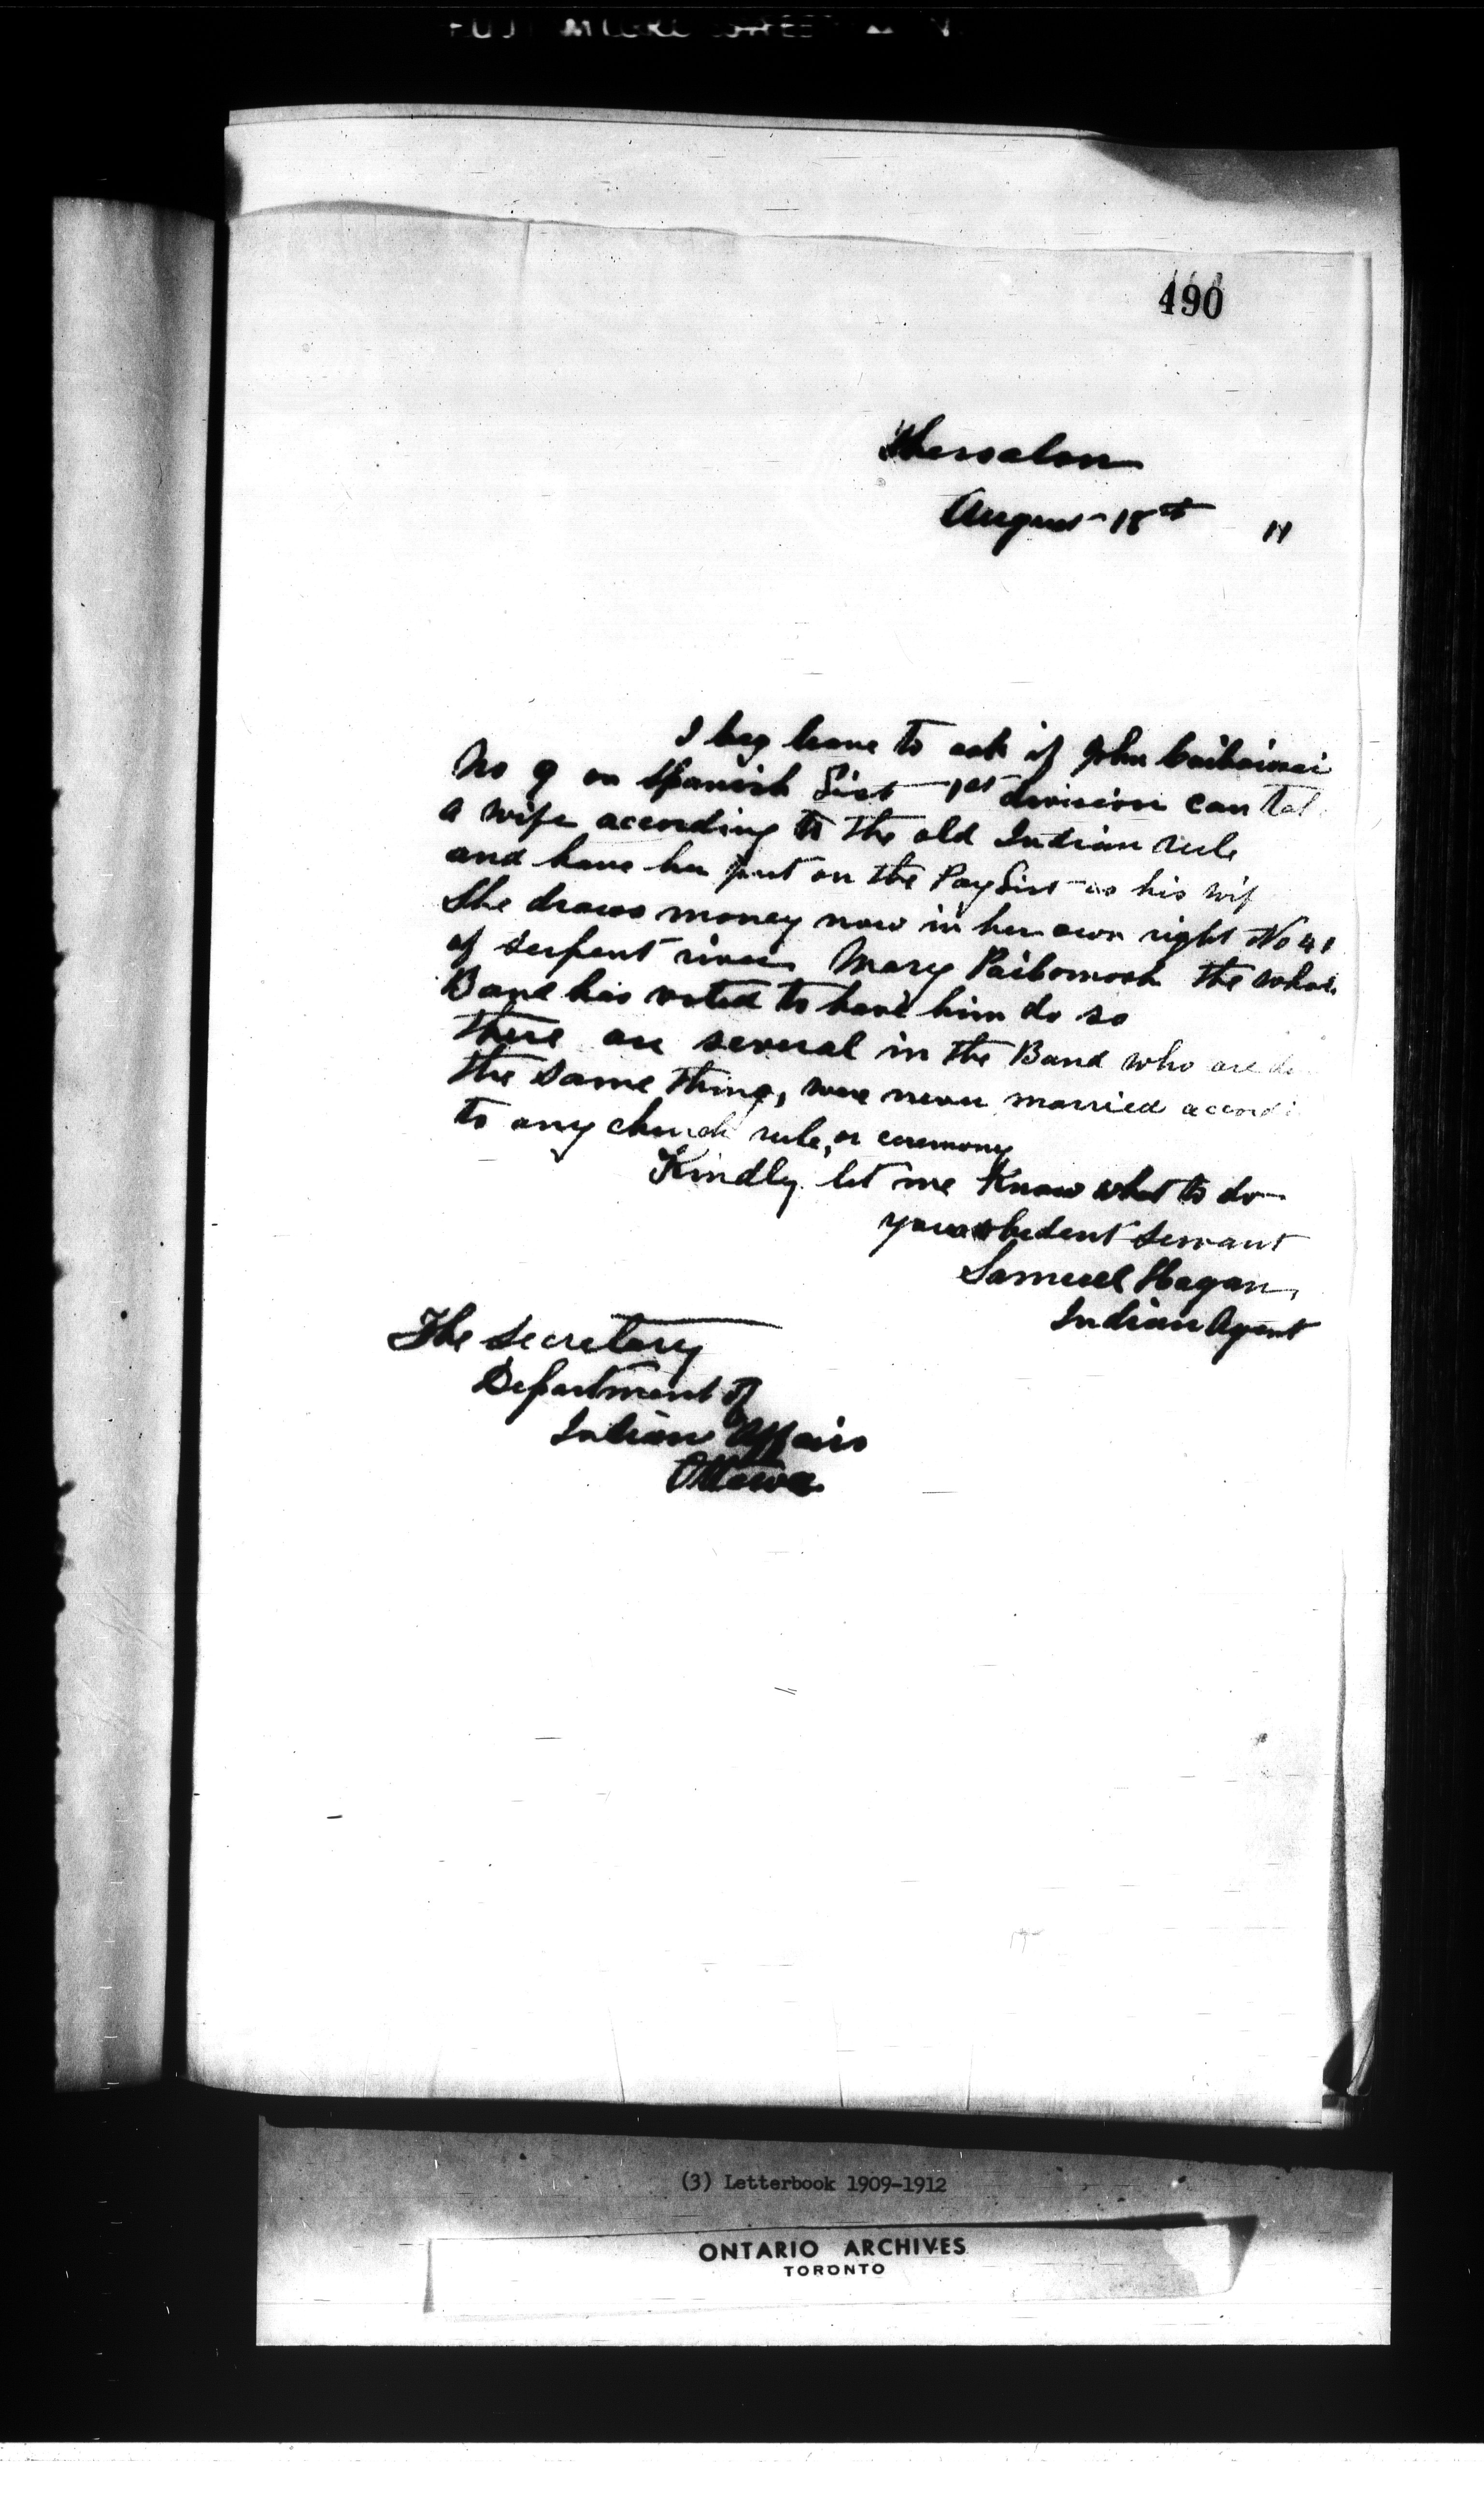 490
Thessalon
August 18th 11
I beg leave to ask if John
No 9 on Spanish List 1st division can
a wife according to the old Indian rule
and have her put on the Pay List as his wif
She draws money now in her own right No 41
of serpent river Mary Paibomosh the whole
Band has voted to have him do so
there are several in the Band who are do
the same thing, were never married accordi
to any church rule, or ceremony
Kindly let me Know what to do
your obedent servant
Samuel Hagan,
Indian Agent
The Secretary
Department of
Indian Affairs
Ottawa
(3) Letterbook 1909-1912
ONTARIO ARCHIVES
TORONTO